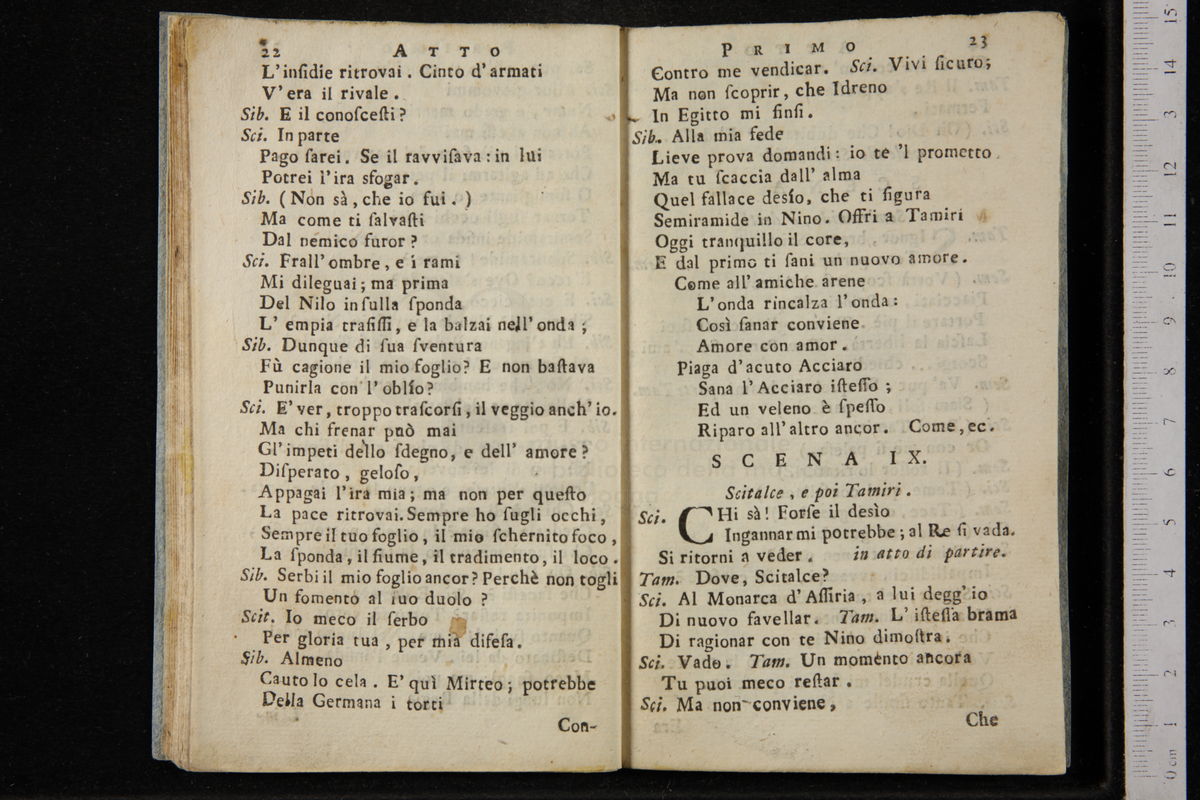 22 ATTO
L'inſidie ritrovai. Cinto d'armati
V'era il rivale.
Sib. E il conoſceſti?
Sci. In parte
Pago ſarei. Se il ravviſava: in lui
Potrei l'ira sfogar.
Sib. (Non sà, che io fui.)
Ma come ti ſalvaſti
Dal nemico furor?
Sci. Frall'ombre, e i rami
Mi dileguai; ma prima
Del Nilo in ſulla ſponda
L'empia trafiſſi, e la balzai nell'onda;
Sib. Dunque di ſua ſventura
Fù cagione il mio foglio? E non baſtava
Punirla con l'oblío?
Sci. E' ver, troppo traſcorſi, il veggio anch'io.
Ma chi frenar può mai
Gl'impeti dello ſdegno, e dell' amore?
Diſperato, geloſo,
Appagai l'ira mia; ma non per queſto
La pace ritrovai. Sempre ho ſugli occhi,
Sempre il tuo foglio, il mio ſchernito foco,
La ſponda, il fiume, il tradimento, il loco.
Sib. Serbi il mio foglio ancor? Perchè non togli
Un fomento al tuo duolo?
Scit. Io meco il ſerbo
Per gloria tua, per mia difeſa.
Sib. Almeno
Cauto lo cela. E' quì Mirteo; potrebbe
Della Germana i torti
Con-
PRIMO 23
Contro me vendicar. Sci. Vivi ſicuro;
Ma non ſcoprir, che Idreno
In Egitto mi finſi.
Sib. Alla mia fede
Lieve prova domandi: io te 'l prometto.
Ma tu ſcaccia dall' alma
Quel fallace desío, che ti figura
Semiramide in Nino. Offri a Tamiri
Oggi tranquillo il core,
E dal primo ti ſani un nuovo amore.
Come all'amiche arene
L'onda rincalza l'onda:
Così ſanar conviene
Amore con amor.
Piaga d'acuto Acciaro
Sana l'Acciaro iſteſſo;
Ed un veleno è ſpeſſo
Riparo all'altro ancor. Come, ec.
SCENA IX.
Scitalce, e poi Tamiri.
Sci. CHi sà! Forſe il desìo
Ingannarmi potrebbe; al Re ſi vada.
Si ritorni a veder. in atto di partire.
Tam. Dove, Scitalce?
Sci. Al Monarca d'Aſſiria, a lui degg'io
Di nuovo favellar. Tam. L' iſteſſa brama
Di ragionar con te Nino dimoſtra.
Sci. Vado. Tam. Un momento ancora
Tu puoi meco reſtar.
Sci. Ma non conviene,
Che